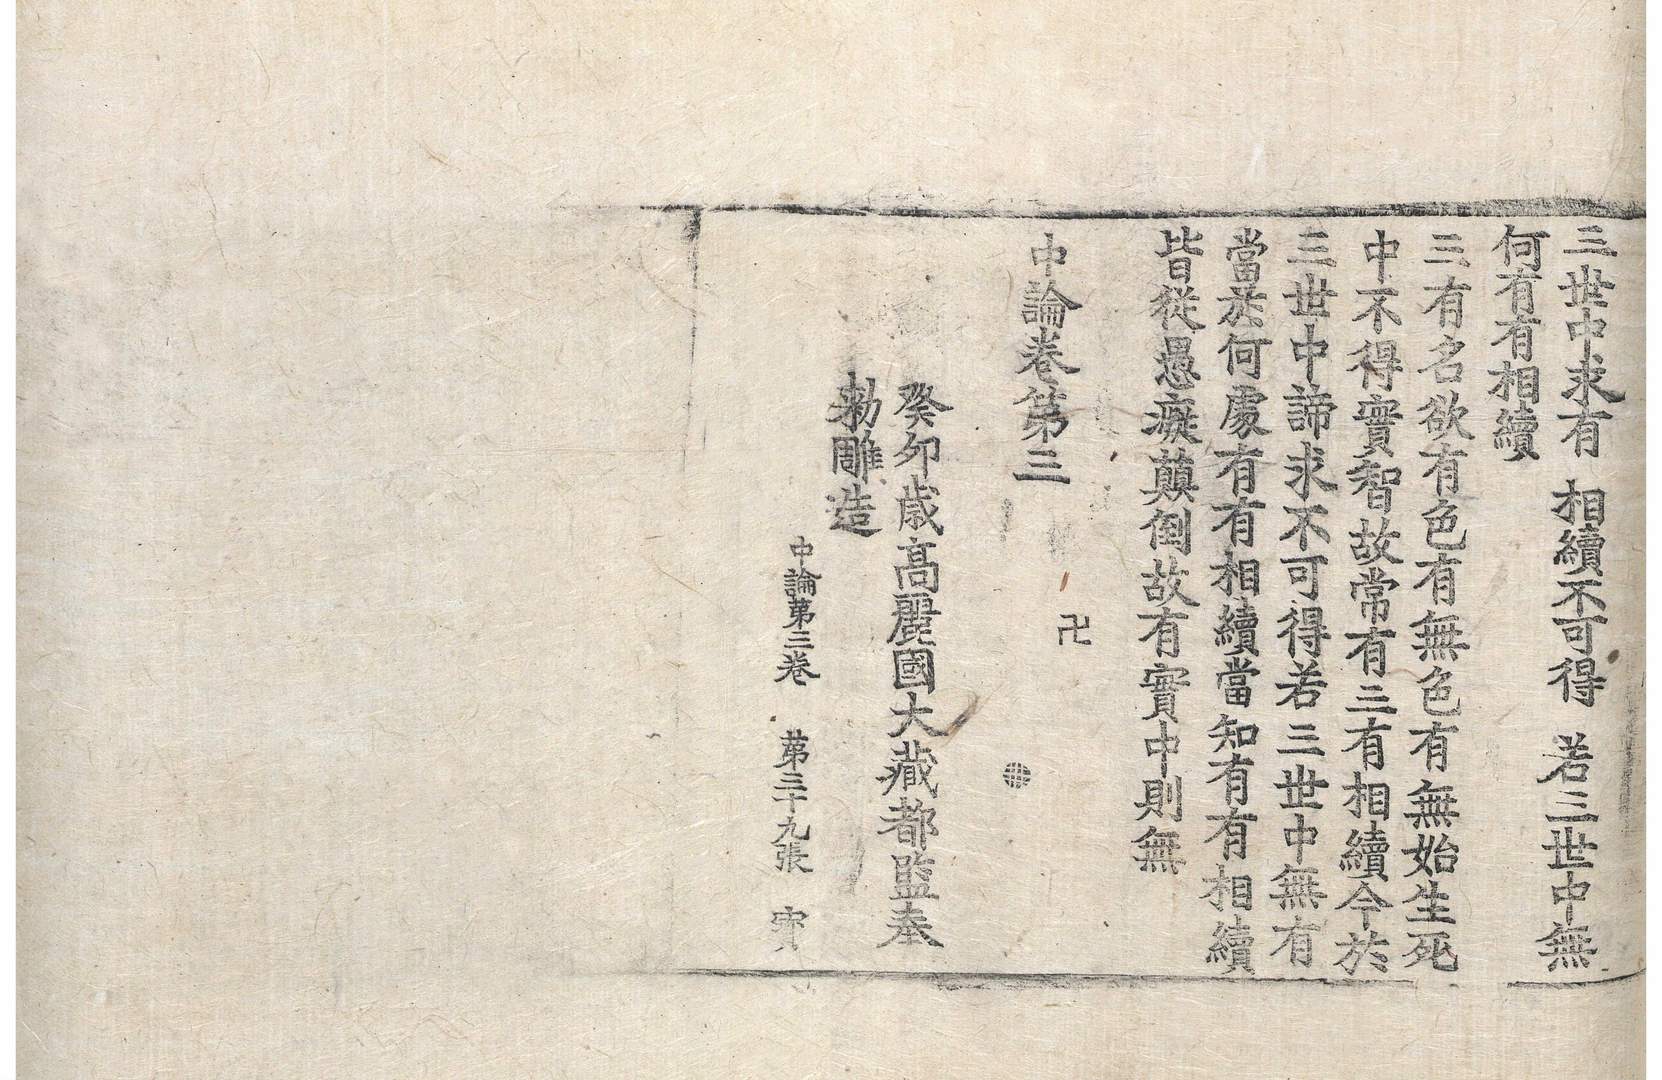 三世中求有 相續不可得 若三世中無
何有有相續
三有名欲有色有無色有無始生死
中不得實智故常有三有相續今於
三世中諦求不可得若三世中無有
當於何處有有相續當知有有相續
皆從愚癡顛倒故有實中則無
中論卷第三
卍
癸卯歲高麗國大藏都監奉
勅雕造
中論第三卷 第三十九張